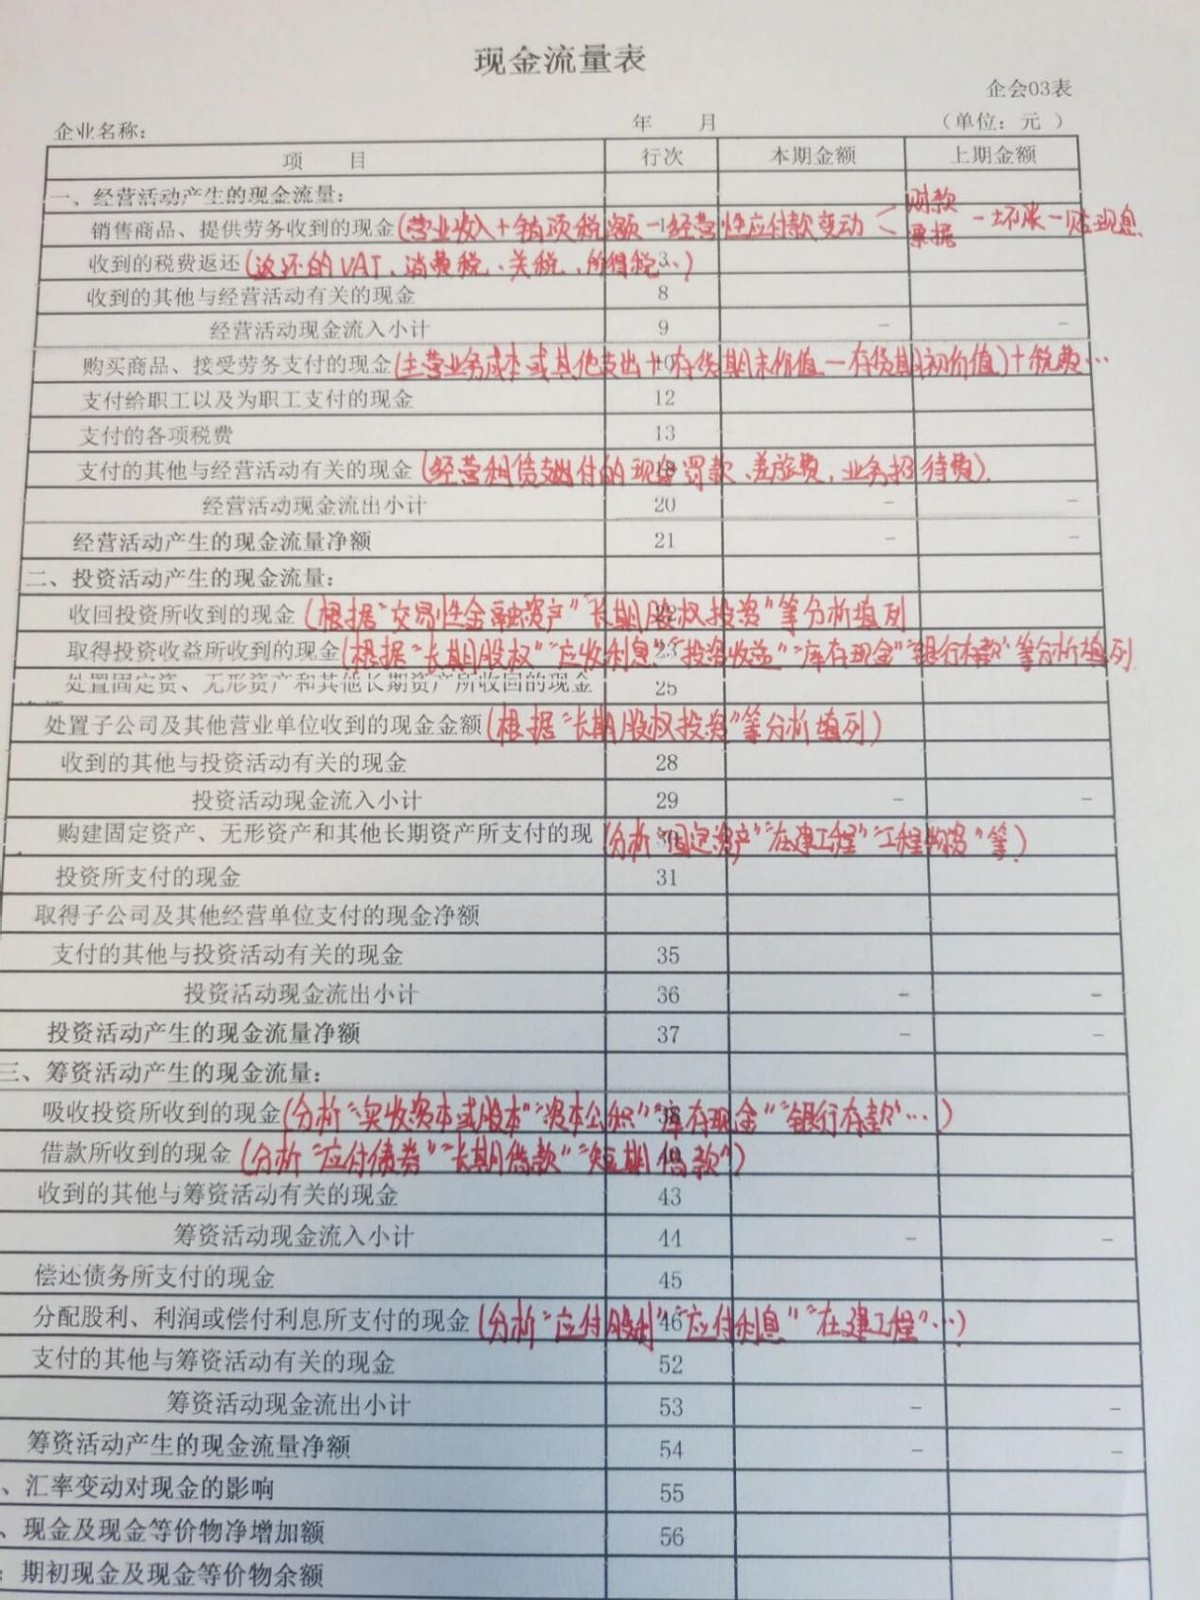 现金流量表
企会03表
企业名称： 年 月 （单位：元 ）
项 目 行次 本期金额 上期金额
一、经营活动产生的现金流量：
销售商品、提供劳务收到的现金(营业收入+销项税额-经营性应付款变动 < 财款 票据 -坏账-贴现息 1
收到的税费返还(返还的VAT、消费税、关税、所得税…) 3
收到的其他与经营活动有关的现金 8
经营活动现金流入小计 9 - -
购买商品、接受劳务支付的现金(主营业务成本或其他支出+(存货期末价值-存货期初价值)+税费… 10
支付给职工以及为职工支付的现金 12
支付的各项税费 13
支付的其他与经营活动有关的现金(经营租赁支出付的现金 罚款、差旅费，业务招待费). 18
经营活动现金流出小计 20 - -
经营活动产生的现金流量净额 21 - -
二、投资活动产生的现金流量：
收回投资所收到的现金(根据“交易性金融资产”“长期股权投资”等分析填列 22
取得投资收益所收到的现金(根据“长期股权”“应收利息”“投资收益”“库存现金”“银行存款”等分析填列 23
处置固定资、无形资产和其他长期资产所收回的现金 25
处置子公司及其他营业单位收到的现金金额(根据“长期股权投资”等分析填列)
收到的其他与投资活动有关的现金 28
投资活动现金流入小计 29 - -
购建固定资产、无形资产和其他长期资产所支付的现 (分析“固定资产”“在建工程”“工程物资”等) 30
投资所支付的现金 31
取得子公司及其他经营单位支付的现金净额
支付的其他与投资活动有关的现金 35
投资活动现金流出小计 36 - -
投资活动产生的现金流量净额 37 - -
三、筹资活动产生的现金流量：
吸收投资所收到的现金(分析“实收资本或股本”“资本公积”“库存现金”“银行存款”…) 38
借款所收到的现金(分析“应付债券”“长期借款”“短期借款”) 40
收到的其他与筹资活动有关的现金 43
筹资活动现金流入小计 44 - -
偿还债务所支付的现金 45
分配股利、利润或偿付利息所支付的现金(分析“应付股利”“应付利息”“在建工程”…) 46
支付的其他与筹资活动有关的现金 52
筹资活动现金流出小计 53 - -
筹资活动产生的现金流量净额 54 - -
、汇率变动对现金的影响 55
、现金及现金等价物净增加额 56
：期初现金及现金等价物余额